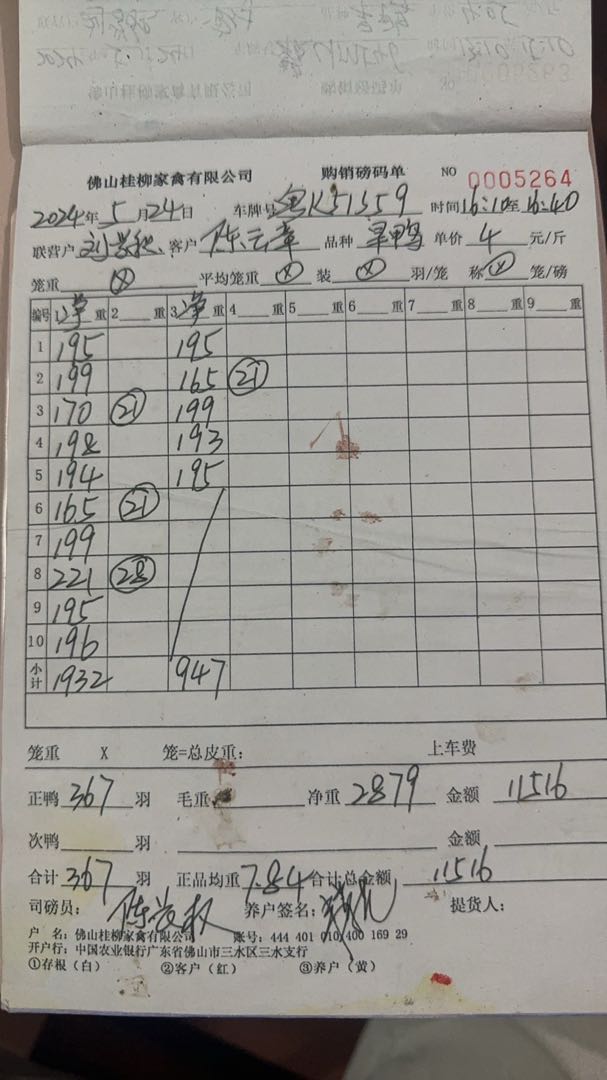 佛山桂柳家禽有限公司 购销磅码单 NO 0005264
2024年5月24日 车牌号 粤K51359 时间16:10至16:40
联营户 客户 陈云章 品种 旱鸭 单价 4 元/斤
笼重 平均笼重 装 羽/笼 称 笼/磅
编号 1 单 重 2 重 3 单 重 4 重 5 重 6 重 7 重 8 重 9 重
1 195 195
2 199 165 21
3 170 21 199
4 198 193
5 194 195
6 165 21
7 199
8 221 28
9 195
10 196
小计 1932 947
笼重 X 笼=总皮重: 上车费
正鸭 367 羽 毛重 净重 2879 金额 11516
次鸭 羽 金额
合计 367 羽 正品均重 7.84 合计总金额 11516
司磅员: 养户签名: 提货人:
户 名: 佛山桂柳家禽有限公司 账号: 444 401 010 400 169 29
开户行: 中国农业银行广东省佛山市三水区三水支行
①存根(白) ②客户(红) ③养户(黄)